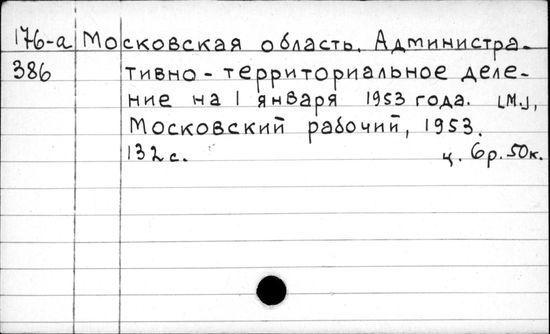 176-а Московская область. Администра-
386 тивно-территориальное деле-
ние на 1 января 1953 года. [М.],
Московский рабочий, 1953.
132 с. ц. 6р. 50к.